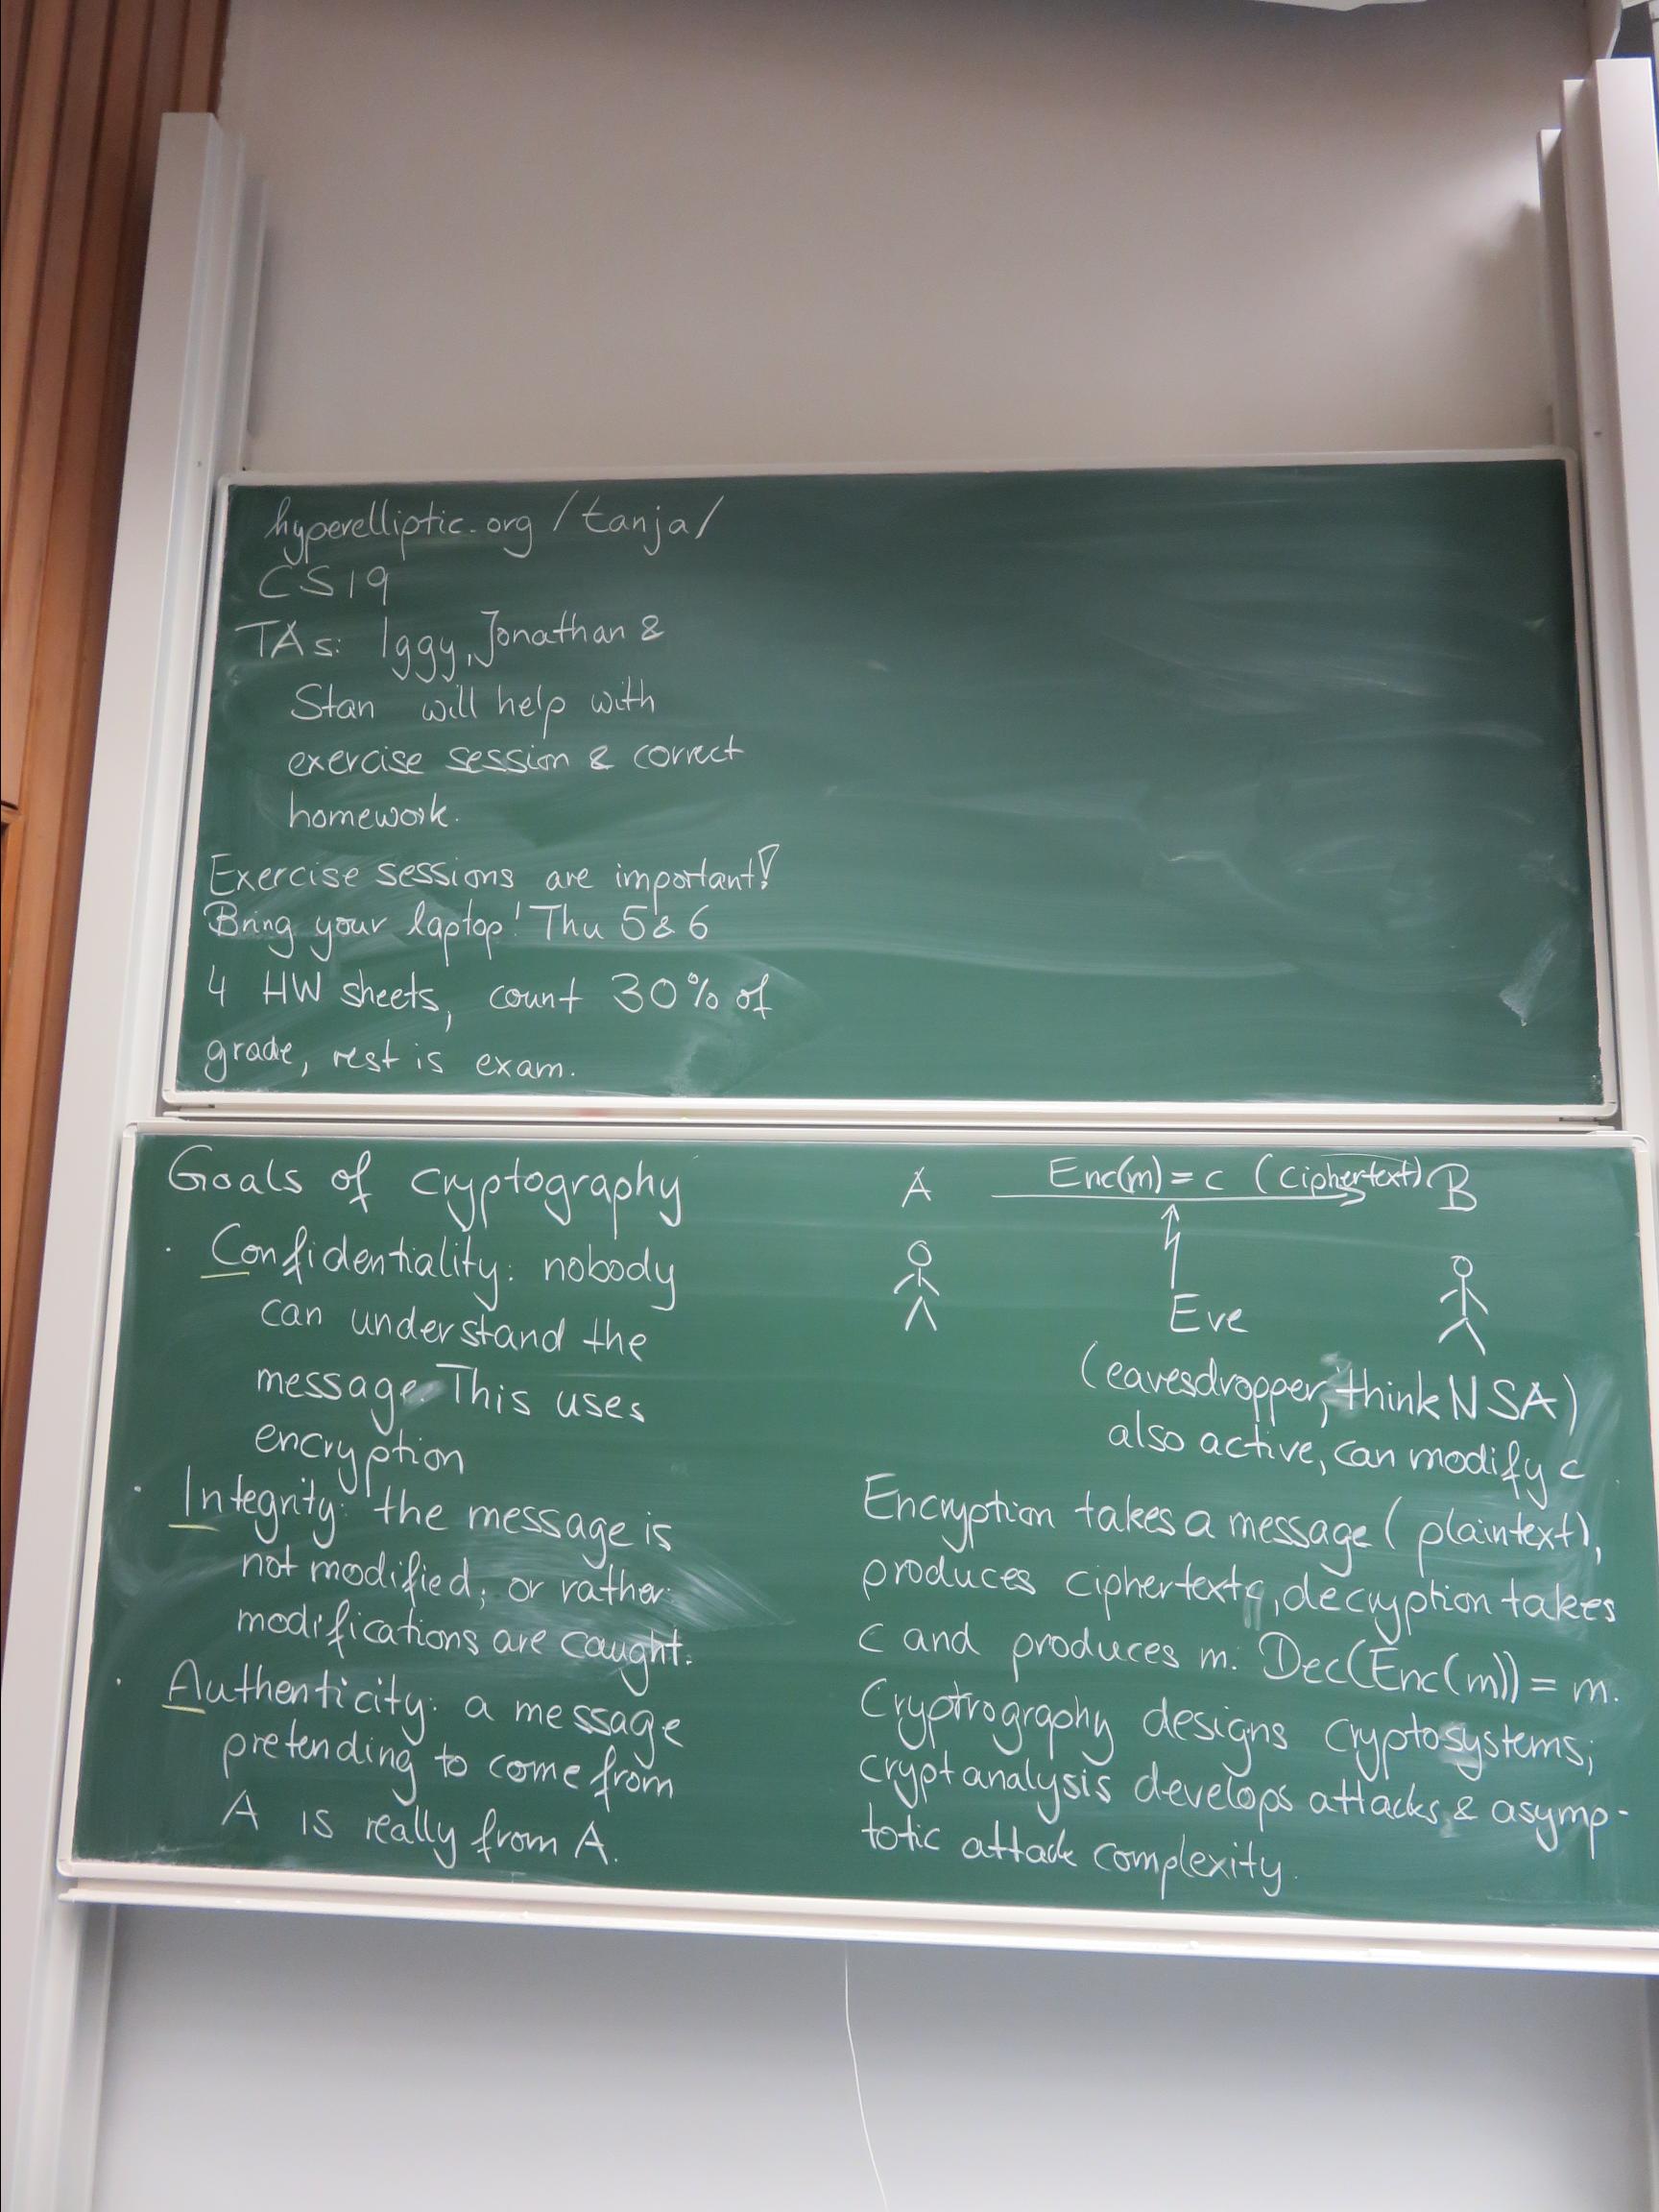 hyperelliptic.org/tanja/
CS19
TAs: Iggy, Jonathan &
Stan will help with
exercise session & correct
homework.
Exercise sessions are important!
Bring your laptop! Thu 5 & 6
4 HW sheets, count 30% of
grade, rest is exam.
Goals of cryptography
· Confidentiality: nobody
can understand the
message. This uses
encryption
· Integrity: the message is
not modified, or rather
modifications are caught.
· Authenticity: a message
pretending to come from
A is really from A.
A Enc(m) = c (ciphertext) B
Eve
(eavesdropper, think NSA)
also active, can modify c
Encryption takes a message (plaintext),
produces ciphertext c, decryption takes
c and produces m. Dec(Enc(m)) = m.
Cryptrography designs cryptosystems;
cryptanalysis develops attacks & asymp-
totic attack complexity.